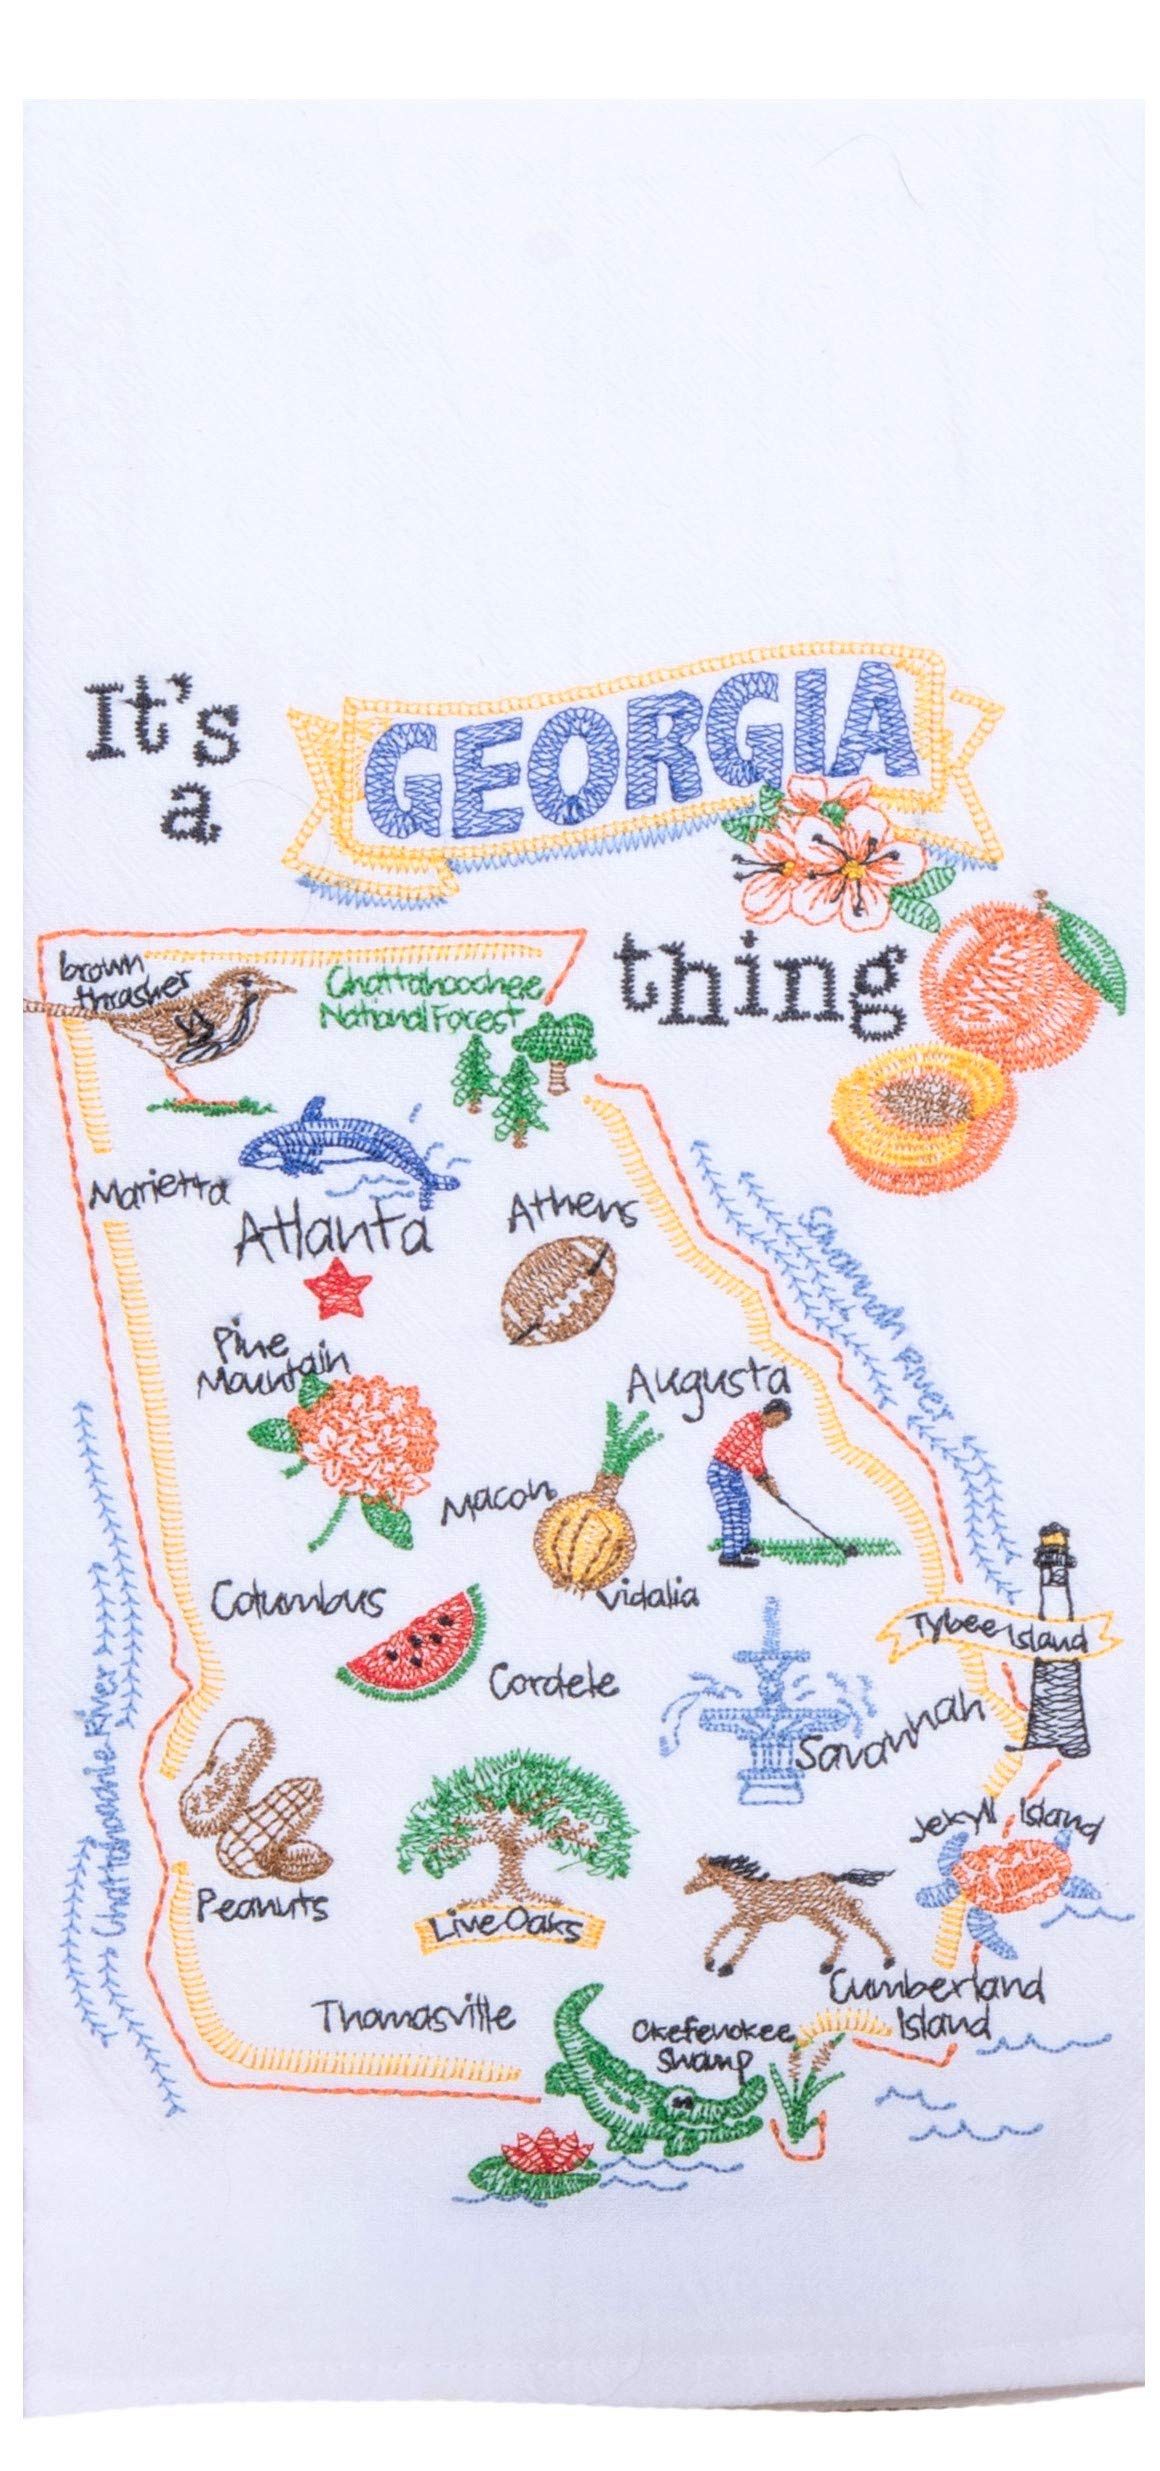 It's
a
GEORGIA
thing
brown
thrasher
Chattahoochee
National Forest
Marietta
Atlanta
Athens
Savannah River
Pine
Mountain
Augusta
Macon
Vidalia
Columbus
Cordele
Tybee Island
Savannah
Chattahoochie River
Jekyll Island
Peanuts
Live Oaks
Cumberland
Island
Thomasville
Okefenokee
Swamp